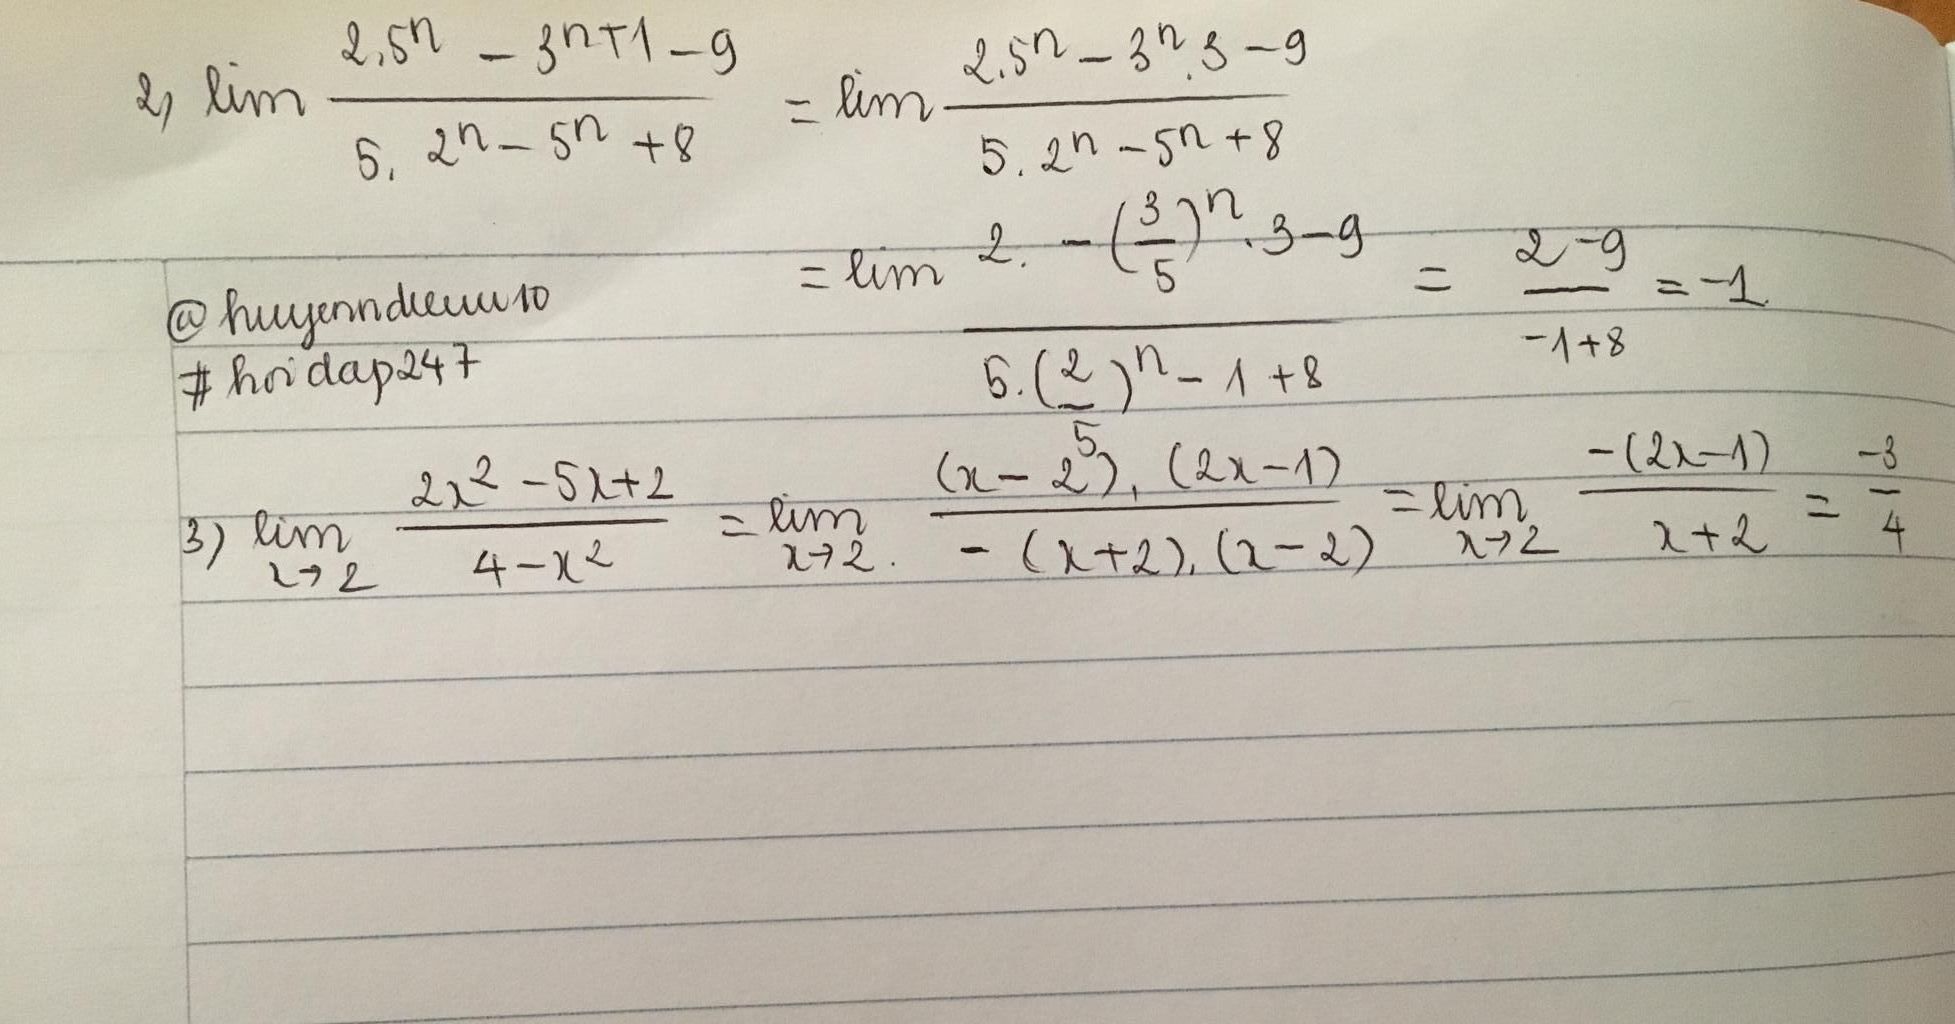 2, lim (2.5ⁿ - 3ⁿ⁺¹ - 9)/(5.2ⁿ - 5ⁿ + 8) = lim (2.5ⁿ - 3ⁿ.3 - 9)/(5.2ⁿ - 5ⁿ + 8)
= lim (2. - (3/5)ⁿ.3 - 9)/(5.(2/5)ⁿ - 1 + 8) = (2 - 9)/(-1 + 8) = -1.
@huyenndieuu10
#hoidap247
3) lim x→2 (2x² - 5x + 2)/(4 - x²) = lim x→2. ((x - 2).(2x - 1))/(-(x + 2).(x - 2)) = lim x→2 (-(2x - 1))/(x + 2) = -3/4